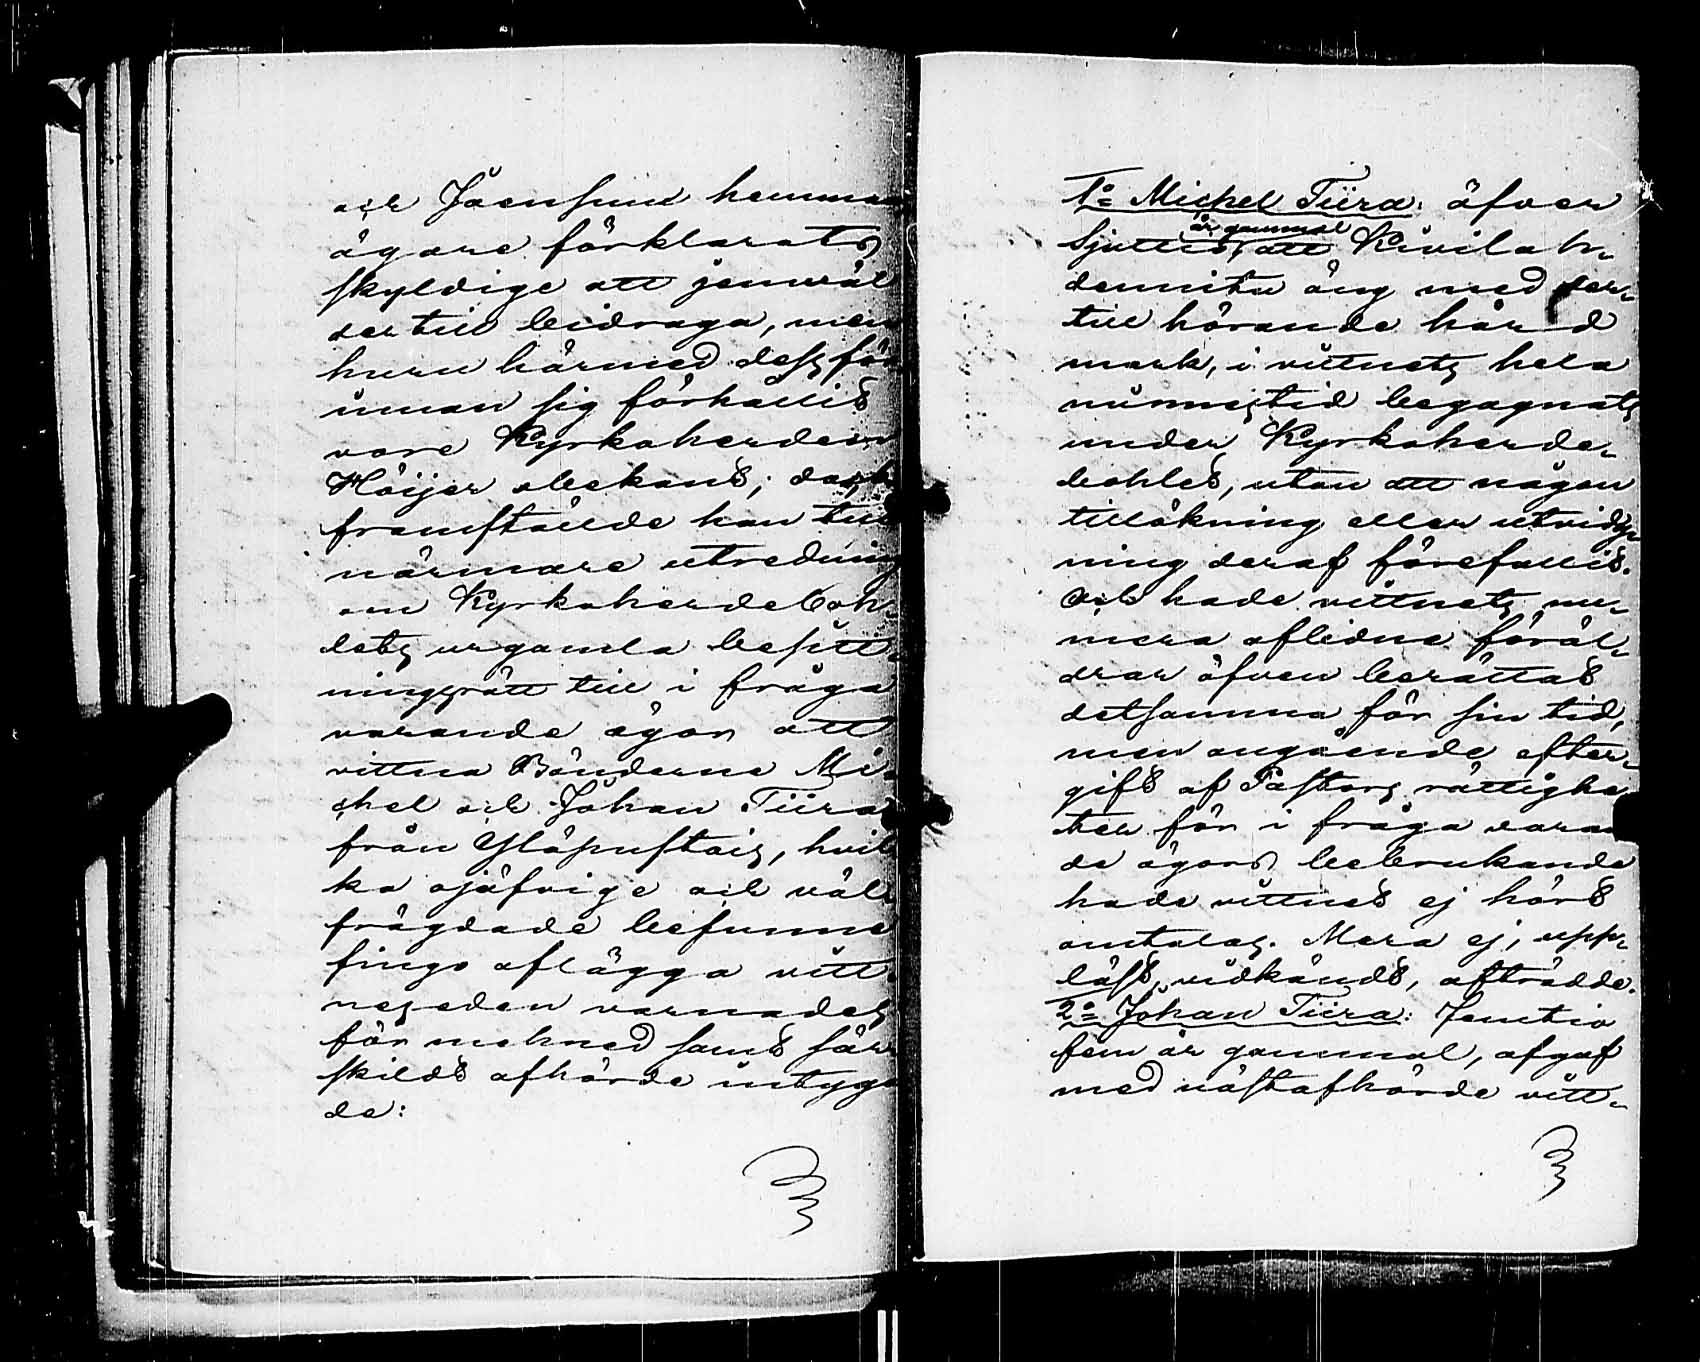 och Joensuu hemmans
ägare förklarats
skyldige att jemväl
dertill bidraga, men
huru härmed dess för
innan sig förhållit
vore Kyrkoherden
Höijer obekant; dock
framställde han till
närmare utredning
om Kyrkoherdeboh-
lets urgamla besitt-
ningsrätt till i fråga
varande ägor att
vittna Bönderne Mi-
chel och Johan Tiira
från Yläpustais, hvil
ka ojäfvige och väl-
frägdade befunne
fingo aflägga vitt
neseden varnades
för mehned samt sär-
skildt afhörde intyga
de:
1o Michel Tiira: öfver
år gammal
Sjuttio, att Kivilah-
denniitu äng med der-
till hörande hård
mark, i vittnets hela
minnestid begagnats
under Kyrkoherde-
bohlet, utan att någon
tillökning eller utvidg-
ning deraf förefallit.
Och hade vittnets nu-
mera aflidne föräl-
drar äfven berättat
detsamma för sin tid,
men angående efter-
gift af Pastors rättighe
ter för i fråga varan
de ägors bebrukande
hade vittnet ej hört
omtalas. Mera ej, upp-
läst, vidkändt, afträdde.
2o Johan Tiira: Femtio
fem år gammal, afgaf
med nästafhörde vitt-